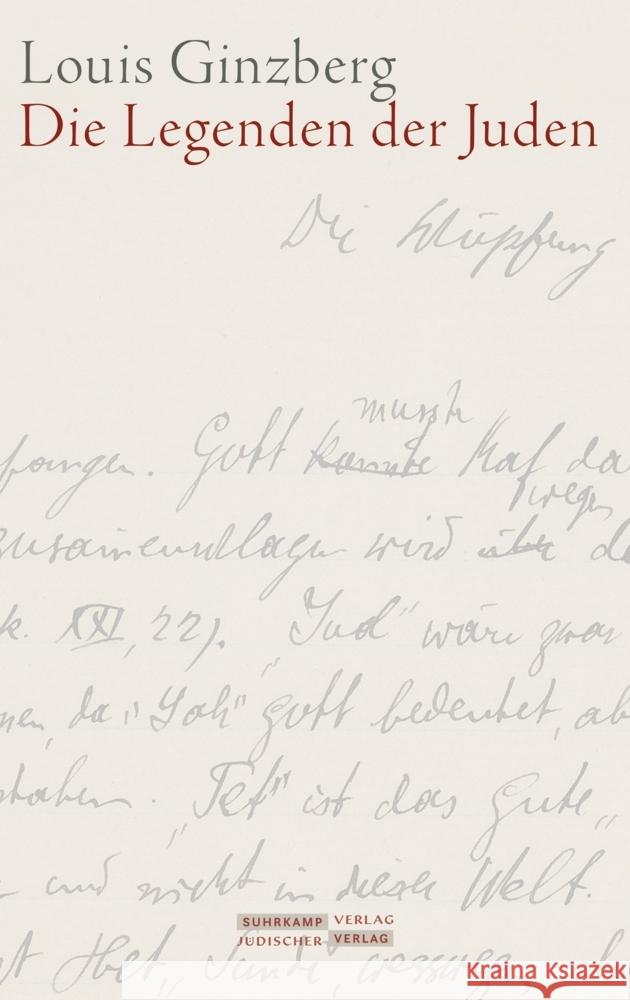 Louis Ginzberg
Die Legenden der Juden
Die Schöpfung
musste
fangen. Gott konnte Kaf da
wegen
zusammenschlagen wird über de
k. XXI, 22). „Jud" wäre zwar
nen, da „Jah" Gott bedeutet, ab
staben. „Tet" ist das Gute,
und nicht in dieser Welt.
SUHRKAMP VERLAG
JÜDISCHER VERLAG